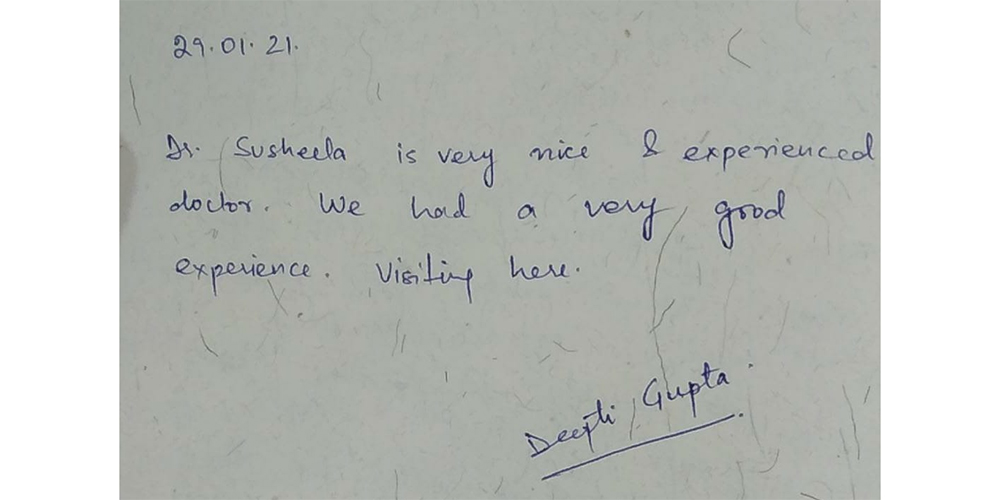 29.01.21.
Dr. Susheela is very nice & experienced
doctor. We had a very good
experience. Visiting here.
Deepti Gupta.